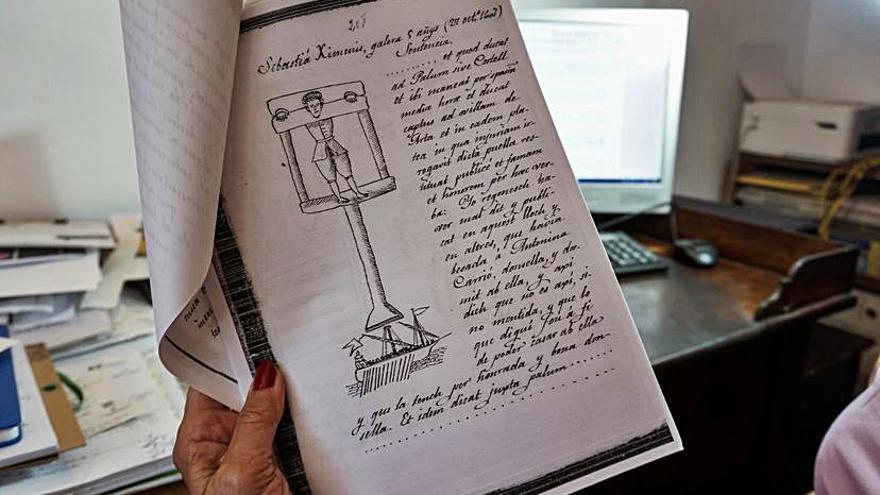 208
Sebastiá Ximenis, galera 5 anys (28 oct.e 1607)
Sentencia.
.......... et quod ducat
ad Palum sive Costell
et ibi maneat per spatium
media hora et ducat
captus ad villam de
Arta et in eadem pla-
tea in qua injuriam ir-
rogavit dicta puella res-
tituat publicé et famam
et honorem per hæc ver-
ba: Jo regonesch ha-
ver mal dit y publi-
cat en aquest lloch y,
en altres, que havia
besada á Antonina
Carrió, donsella, y dor-
mit ab ella, y api
dich que no es axi, si-
no mentida, y que lo
que digui fou á fi
de poder casar ab ella
y que la tench por honrada y bona don-
sella. Et idem dicat juxta palum